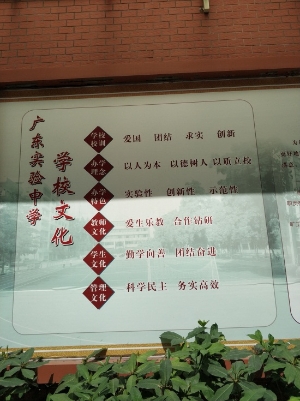 广东实验中学
学校文化
学校校训 爱国 团结 求实 创新
办学理念 以人为本 以德树人 以质立校
办学特色 实验性 创新性 示范性
教师文化 爱生乐教 合作钻研
学生文化 勤学向善 团结奋进
管理文化 科学民主 务实高效